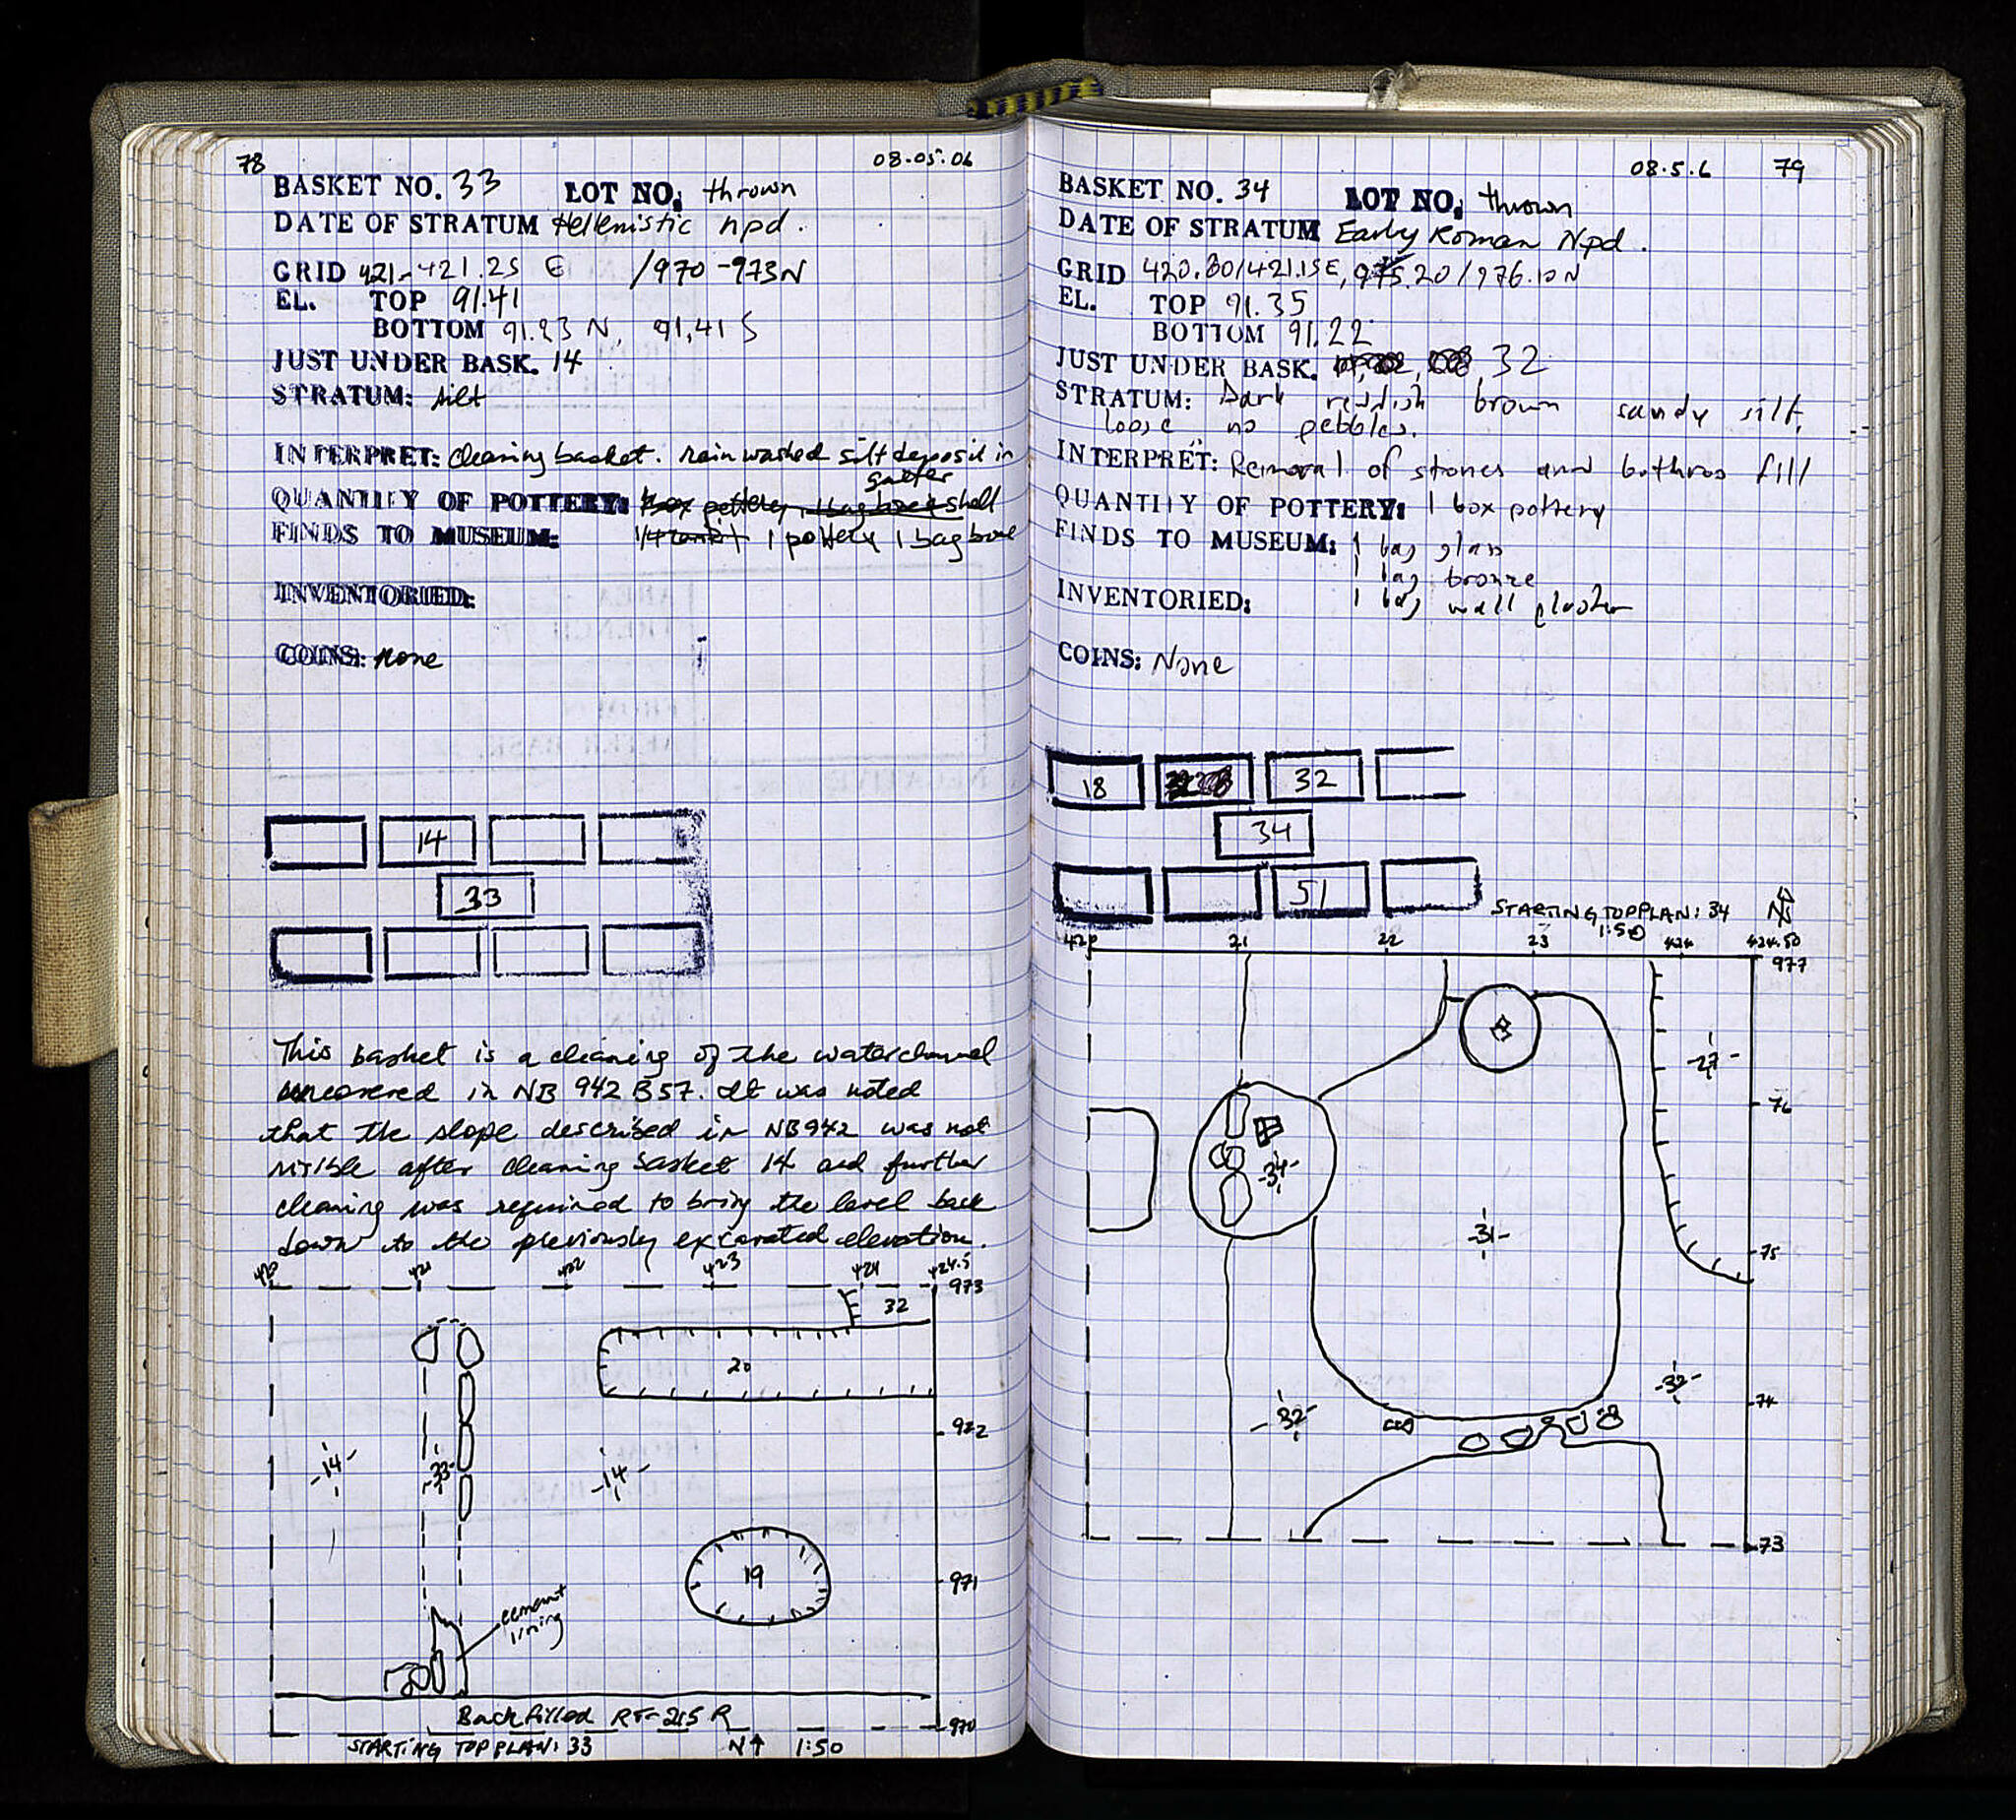 78
08-05-06
BASKET NO. 33 LOT NO: thrown
DATE OF STRATUM Hellenistic npd.
GRID 421-421.25 E /970-973N
EL. TOP 91.41
BOTTOM 91.23 N, 91.41 S
JUST UNDER BASK. 14
STRATUM: silt
INTERPRET: cleaning basket. rain washed silt deposit in
gutter
QUANTITY OF POTTERY: 1 box pottery, 1 bag bone + shell
FINDS TO MUSEUM: 1 pottery 1 bag bone
INVENTORIED:
COINS: none
14
33
This basket is a cleaning of the waterchannel
uncovered in NB 942 B57. It was noted
that the slope described in NB942 was not
visible after cleaning basket 14 and further
cleaning was required to bring the level back
down to the previously excavated elevation.
420 421 422 423 424 424.5
973
32
20
972
-14- -33- -14-
19
971
cement
lining
Backfilled RT-215 R
970
STARTING TOP PLAN: 33 N↑ 1:50
08.5.6 79
BASKET NO. 34 LOT NO: thrown
DATE OF STRATUM Early Roman Npd.
GRID 420.80/421.15E, 975.20/976.10N
EL. TOP 91.35
BOTTOM 91.22
JUST UNDER BASK. 32
STRATUM: Dark reddish brown sandy silt,
loose no pebbles.
INTERPRET: Removal of stones and bothros fill
QUANTITY OF POTTERY: 1 box pottery
FINDS TO MUSEUM: 1 bag glass
1 bag bronze
INVENTORIED: 1 bag wall plaster
COINS: None
18 32
34
51
STARTING TOP PLAN: 34 N
1:50
420 21 22 23 424 424.50
977
-27-
76
-34-
-31-
75
-32-
74
-32-
73